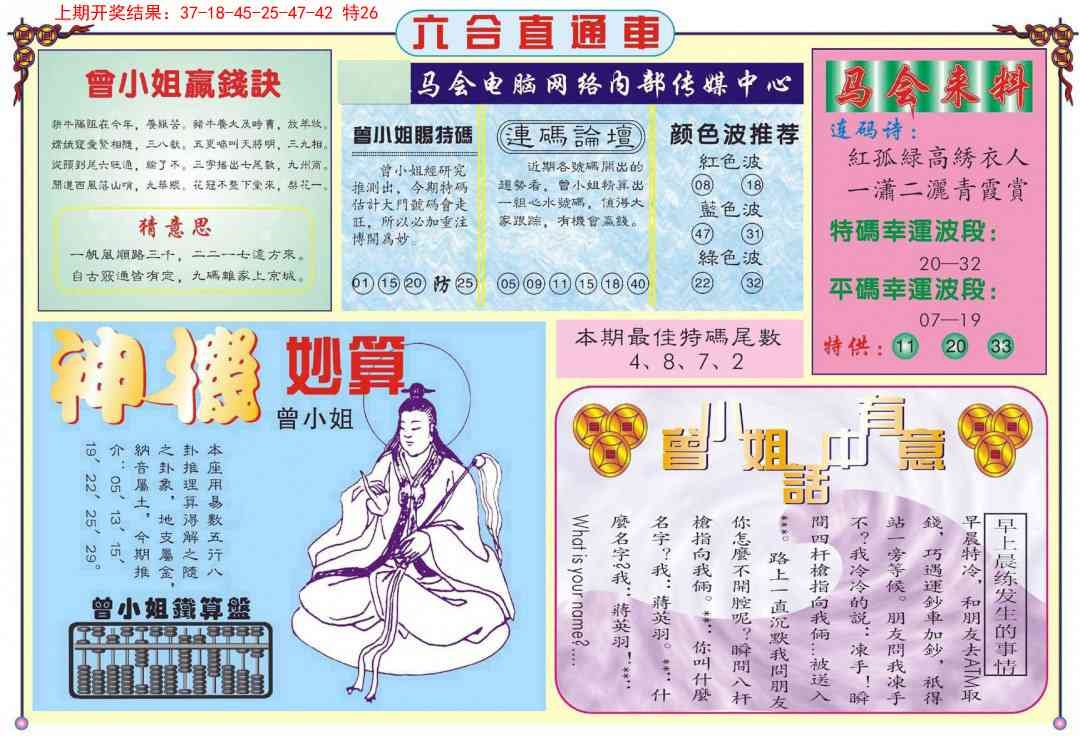 上期开奖结果：37-18-45-25-47-42 特26
六合直通車
曾小姐贏錢訣
猜意思
一帆風順路三千，二二一七遠方來。
自古窮通皆有定，九碼離家上京城。
马会电脑网络内部传媒中心
曾小姐賜特碼
曾小姐經研究
推測出，今期特碼
估計大門號碼會走
旺，所以必加重注
博開為妙。
01 15 20 防 25
連碼論壇
近期各號碼開出的
趨勢看，曾小姐精算出
一組心水號碼，值得大
家跟踪，有機會贏錢。
05 09 11 15 18 40
颜色波推荐
紅色波
08 18
藍色波
47 31
綠色波
22 32
马会来料
连码诗：
紅孤緑高綉衣人
一瀟二灑青霞賞
特碼幸運波段：
20—32
平碼幸運波段：
07—19
特供：11 20 33
本期最佳特碼尾數
4、8、7、2
神機妙算
曾小姐
本座用易數五行八
卦推理算得解之隨
之卦象，地支屬金，
納音屬土，今期推
介：05、13、15、
19、22、25、29。
曾小姐鐵算盤
曾小姐話中有意
早上晨练发生的事情
早晨特冷，和朋友去ATM取
錢，巧遇運鈔車加鈔，祇得
站一旁等候。朋友問我凍手
不？我冷冷的説：凍手！瞬
間四杆槍指向我倆…被送入
***。路上一直沉默我問朋友
你怎麼不開腔呢？瞬間八杆
槍指向我倆。**：你叫什麼
名字？我：蔣英羽。**：什
麼名字？我：蔣英羽！**：
What is your name？....